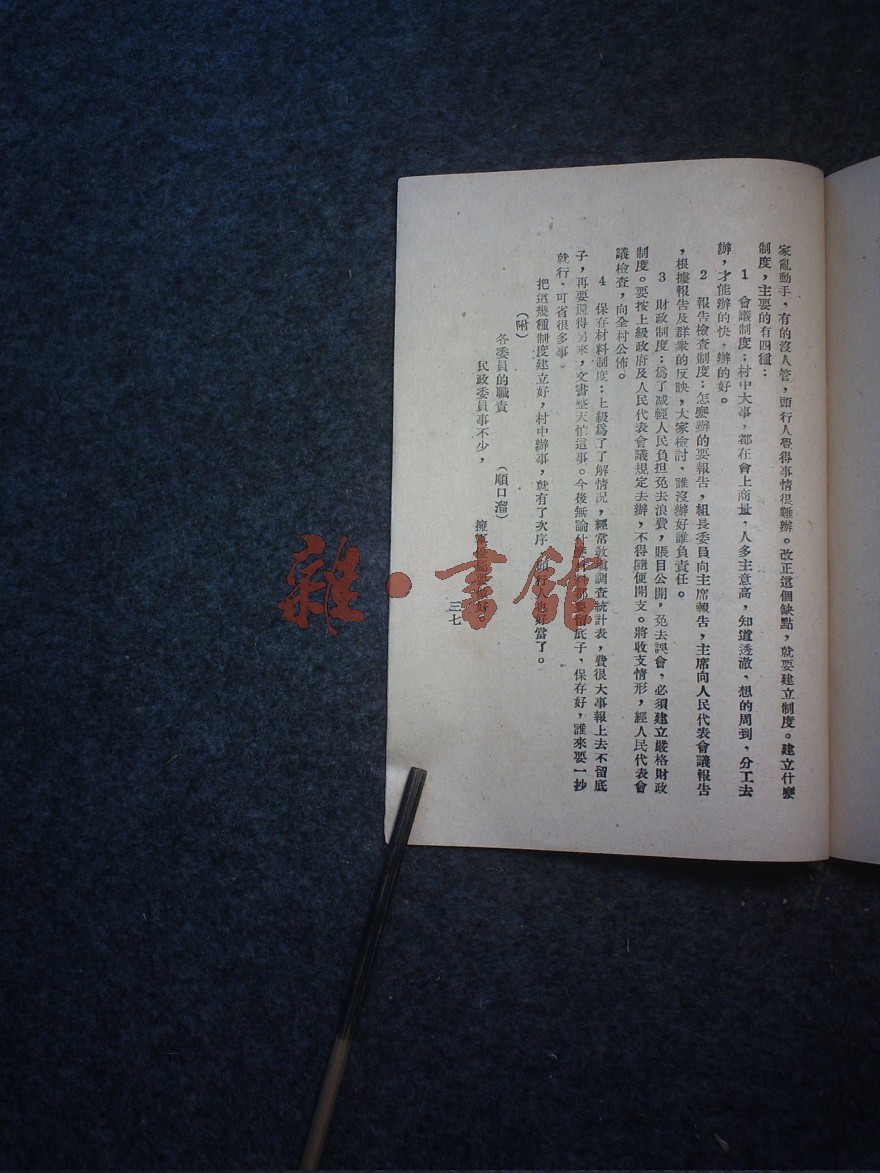 家亂動手，有的沒人管，頭行人覺得事情很難辦。改正這個缺點，就要建立制度。建立什麼
制度，主要的有四種：
1　會議制度：村中大事，都在會上商量，人多主意高，知道透澈、想的周到，分工去
辦，才能辦的快，辦的好。
2　報告檢查制度：怎麼辦的要報告，組長委員向主席報告，主席向人民代表會議報告
，根據報告及群衆的反映，大家檢討、誰沒辦好誰負責任。
3　財政制度：爲了减輕人民負担免去浪費，賬目公開，免去誤會，必須建立嚴格財政
制度。要按上級政府及人民代表會議規定去辦，不得隨便開支。將收支情形，經人民代表會
議檢查，向全村公佈。
4　保存材料制度：上級爲了了解情况，經常敎塡調查統計表，費很大事報上去不留底
子，再要還得另來，文書整天忙這事。今後無論什麼材料都要留底子、保存好，誰來要一抄
就行，可省很多事。
把這幾種制度建立好，村中辦事，就有了次序，頭行人也好當了。
（附）
各委員的職責　（順口溜）
民政委員事不少，　擁軍優屬要作好。
三七
雜·書館